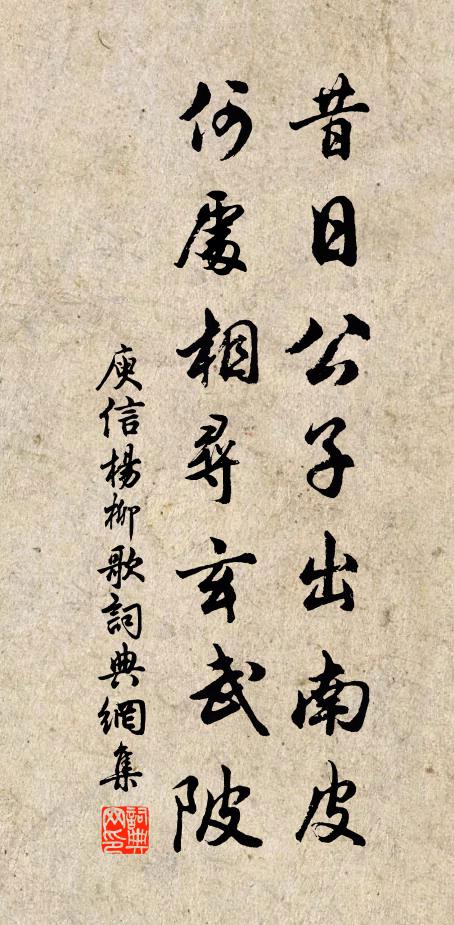 昔日公子出南皮
何處相尋玄武陂
庾信楊柳歌詞典網集
詞典網印